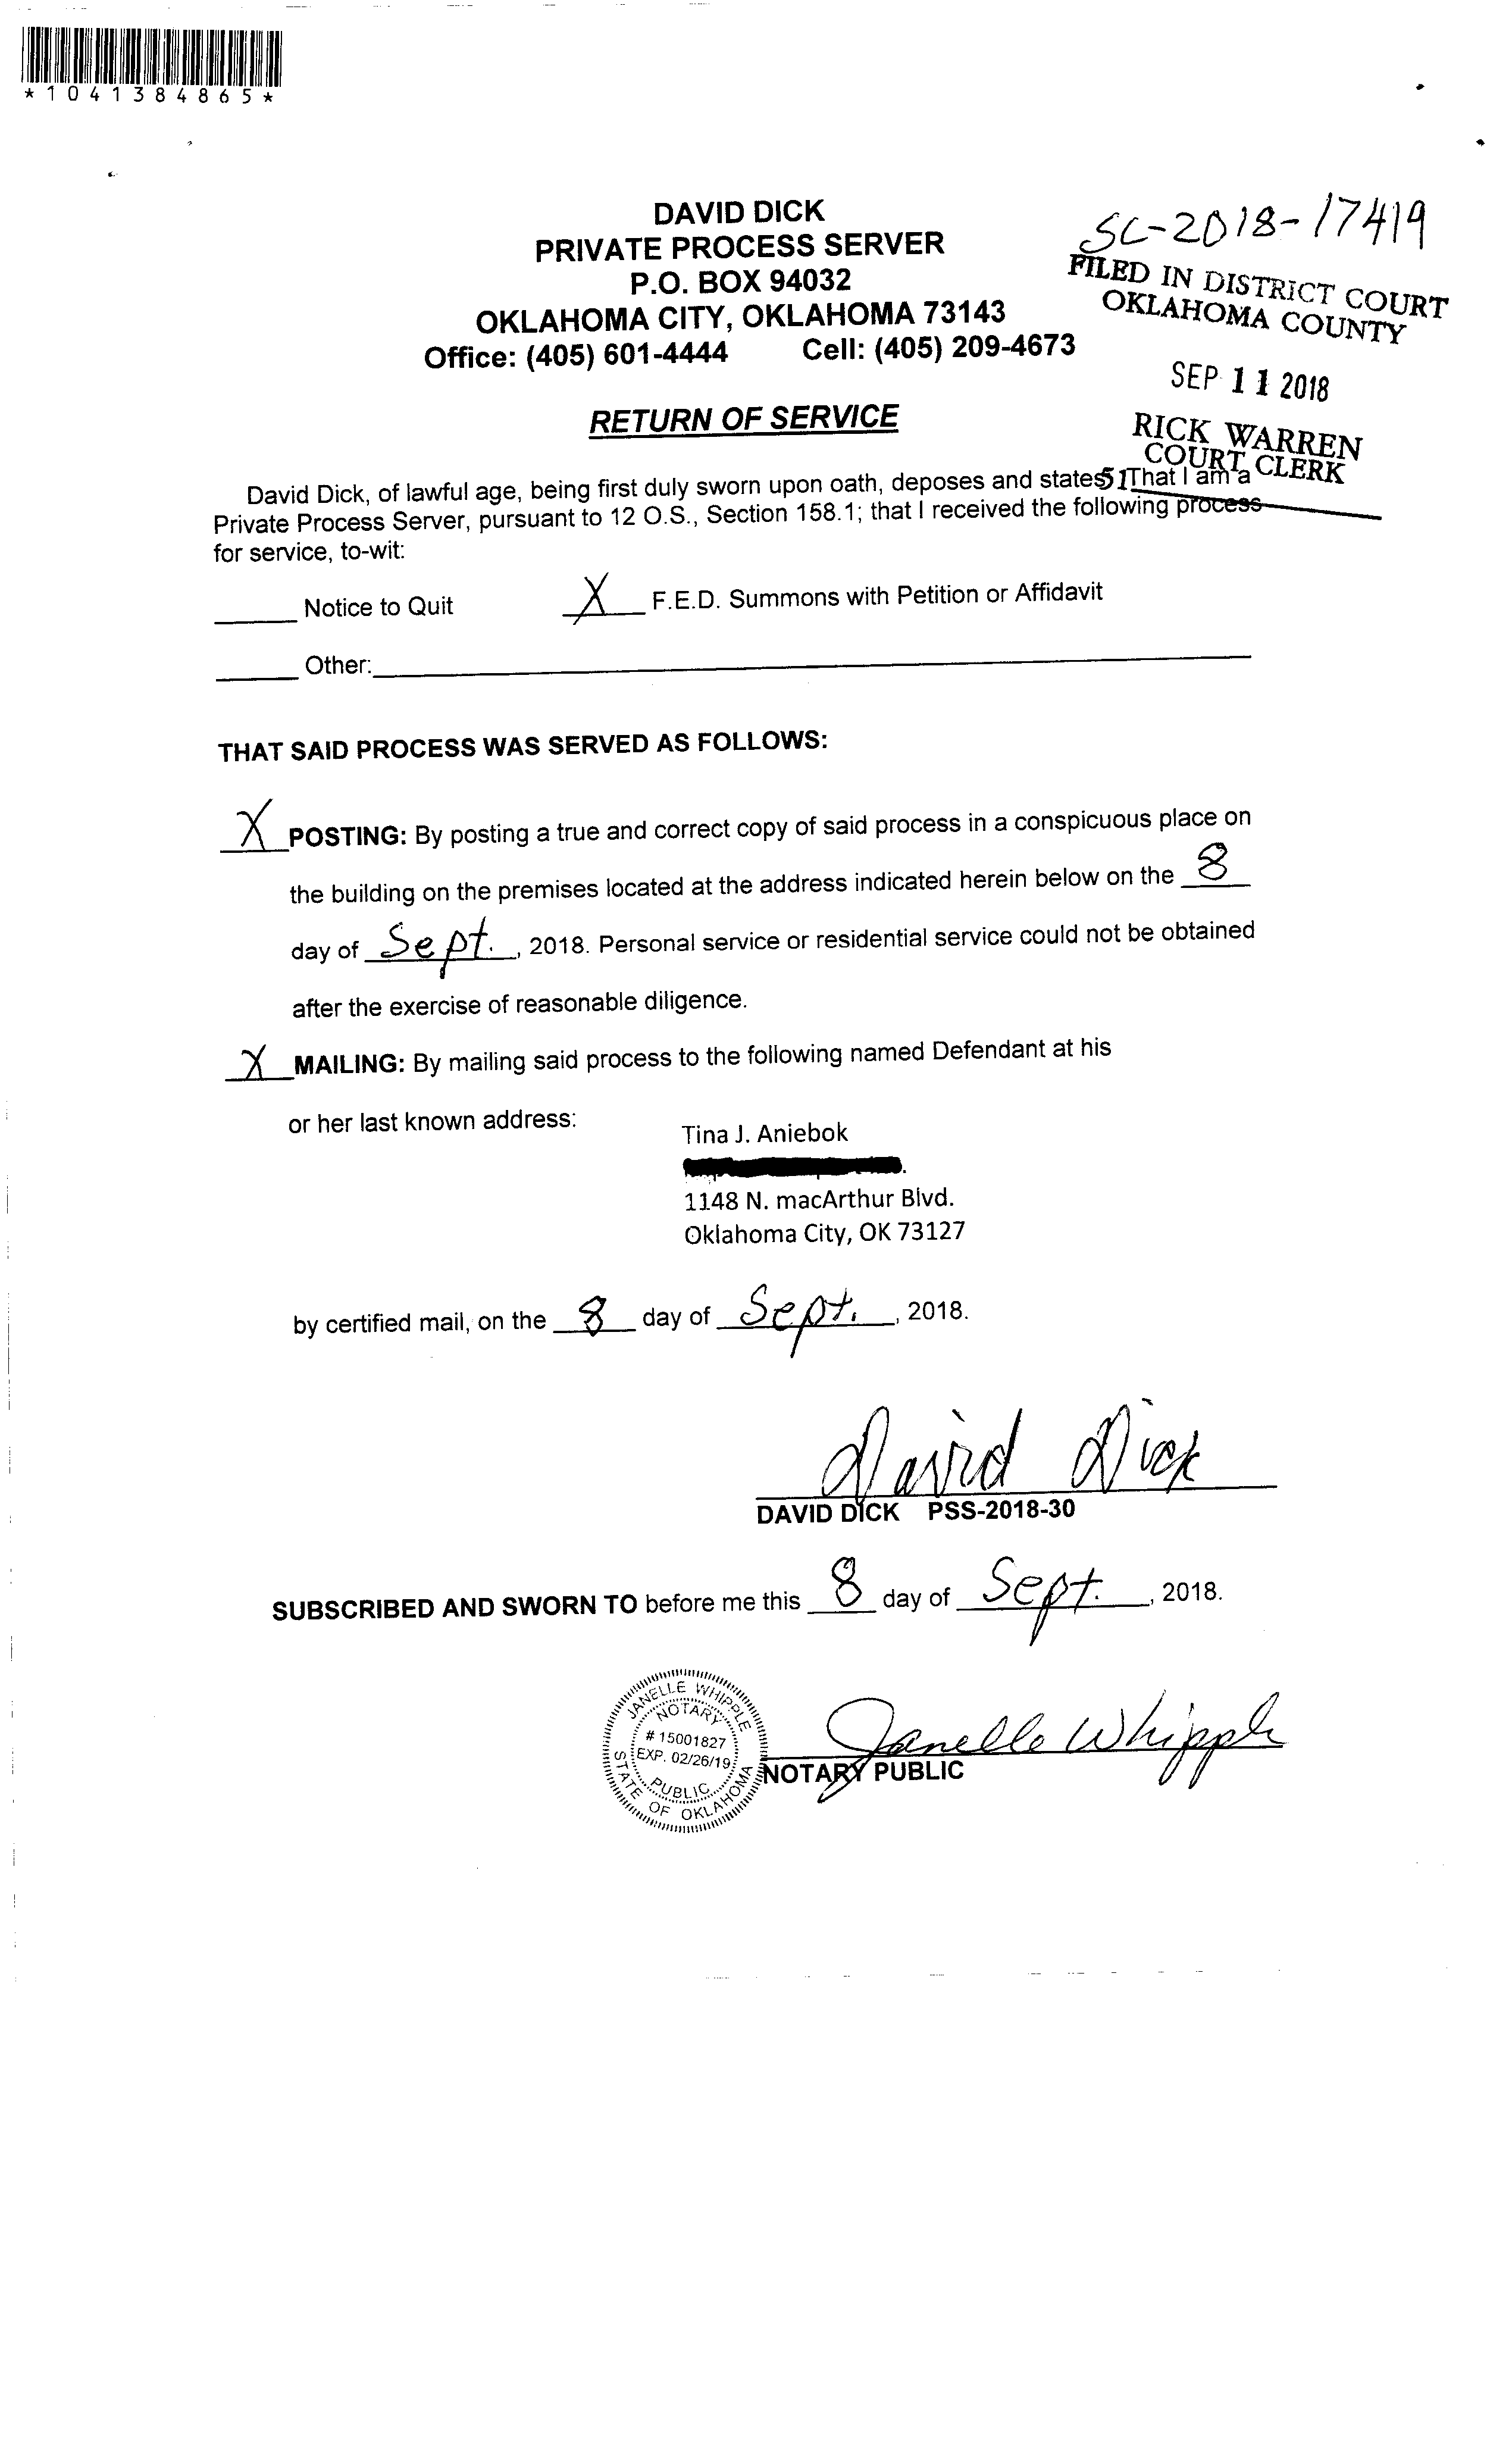 *1041384865*
DAVID DICK
PRIVATE PROCESS SERVER
P.O. BOX 94032
OKLAHOMA CITY, OKLAHOMA 73143
Office: (405) 601-4444 Cell: (405) 209-4673
SC-2018-17419
FILED IN DISTRICT COURT
OKLAHOMA COUNTY
SEP 11 2018
RICK WARREN
COURT CLERK
51
RETURN OF SERVICE
David Dick, of lawful age, being first duly sworn upon oath, deposes and states: That I am a
Private Process Server, pursuant to 12 O.S., Section 158.1; that I received the following process
for service, to-wit:
______ Notice to Quit X F.E.D. Summons with Petition or Affidavit
______ Other:
THAT SAID PROCESS WAS SERVED AS FOLLOWS:
X POSTING: By posting a true and correct copy of said process in a conspicuous place on
the building on the premises located at the address indicated herein below on the 8
day of Sept., 2018. Personal service or residential service could not be obtained
after the exercise of reasonable diligence.
X MAILING: By mailing said process to the following named Defendant at his
or her last known address:
Tina J. Aniebok
1148 N. macArthur Blvd.
Oklahoma City, OK 73127
by certified mail, on the 8 day of Sept., 2018.
David Dick
DAVID DICK PSS-2018-30
SUBSCRIBED AND SWORN TO before me this 8 day of Sept., 2018.
JANELLE WHIPPLE
NOTARY
# 15001827
EXP. 02/26/19
PUBLIC
STATE OF OKLAHOMA
Janelle Whipple
NOTARY PUBLIC